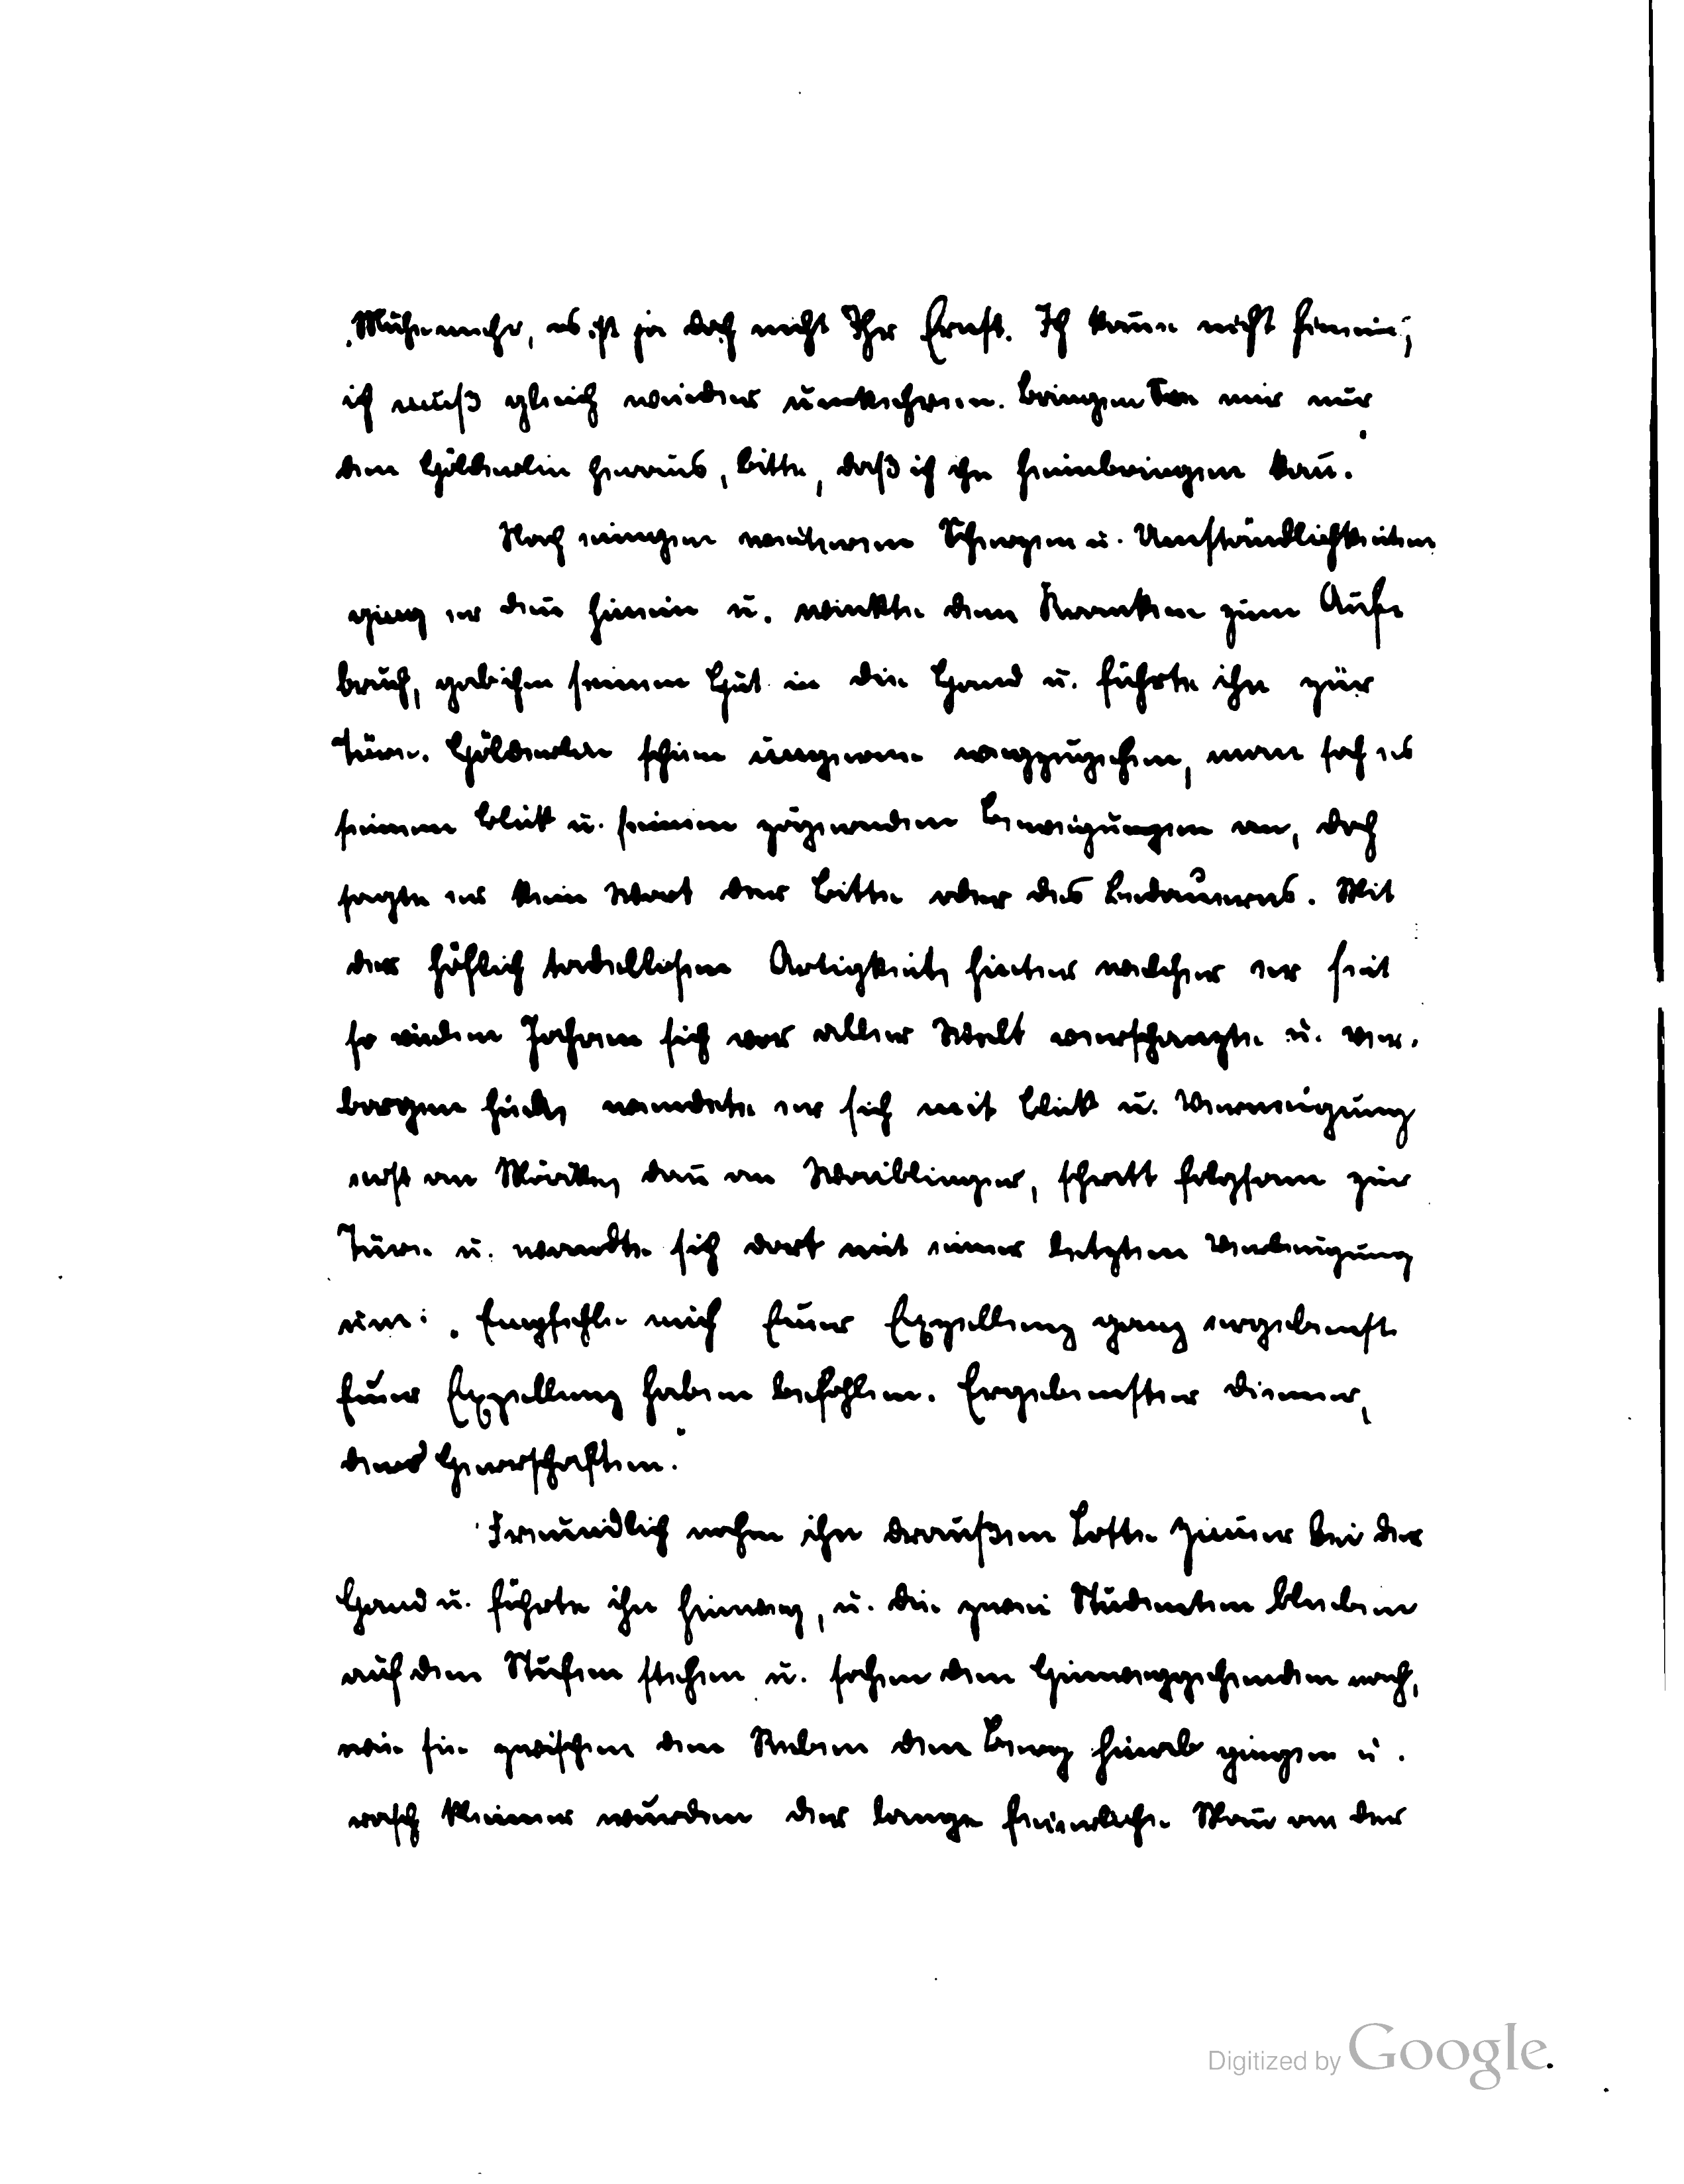 „Mühe mehr, es ist ja doch nicht Ihr Ernst. Ich kann nicht hinein;
ich muß gleich wieder umkehren. Bringen Sie mir nur
den Hölderlin heraus, bitte, daß ich ihn heimbringen kañ.“
Nach einigen weiteren Scherzen u. Umständlichkeiten
ging er deñ hinein u. winkte dem Kranken zum Auf-
bruch, gab ihm seinen Hut in die Hand u. führte ihn zur
Türe. Hölderlin schien ungerne wegzugehen, man sah es
seinem Blick u. seinen zögernden Bewegungen an, doch
sagte er kein Wort der Bitte oder des Bedauerns. Mit
der höflich tadellosen Artigkeit, hinter welcher er seit
so vielen Jahren sich vor aller Welt verschanzte u. ver-
borgen hielt, wendete er sich mit Blick u. Verneigung
erst an Mörike, dañ an Waiblinger, schritt folgsam zur
Türe u. wandte sich dort mit einer letzten Verbeugung
um: „Empfehle mich Euer Exzellenz ganz ergebenst.
Euer Exzellenz haben befohlen. Ergebenster Diener,
die Herrschaften.“
Freundlich nahm ihn draußen Lotte Zim̃er bei der
Hand u. führte ihn hinweg, u. die zwei Studenten blieben
auf den Stufen stehen u. sahen den Hinweggehenden nach,
wie sie zwischen den Reben den Berg hinab gingen u.
rasch kleiner wurden der lange feierliche Mañ an der